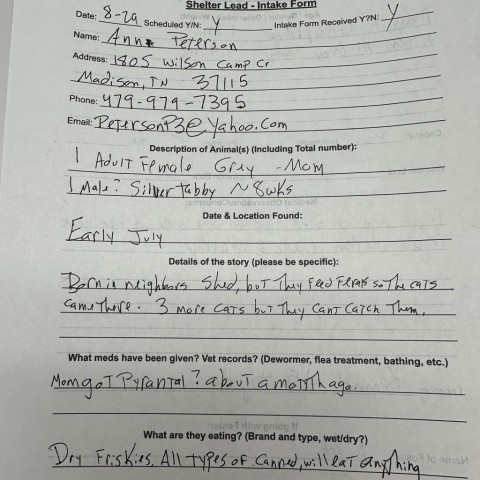 Shelter Lead - Intake Form
Date: 8-29 Scheduled Y/N: Y Intake Form Received Y?N: Y
Name: Anne Peterson
Address: 1805 Wilson Camp Cr
Madison, TN 37115
Phone: 479-979-7395
Email: PetersonP3@Yahoo.com
Description of Animal(s) (Including Total number):
1 Adult Female Grey - Mom
1 Male? Silver Tabby ~8wks
Date & Location Found:
Early July
Details of the story (please be specific):
Born in neighbors Shed, but They Feed Ferals so The cats
came There. 3 more cats but They Cant Catch Them.
What meds have been given? Vet records? (Dewormer, flea treatment, bathing, etc.)
Mom got Pyrantal? about a month ago.
What are they eating? (Brand and type, wet/dry?)
Dry Friskies. All types of Canned, will eat anything